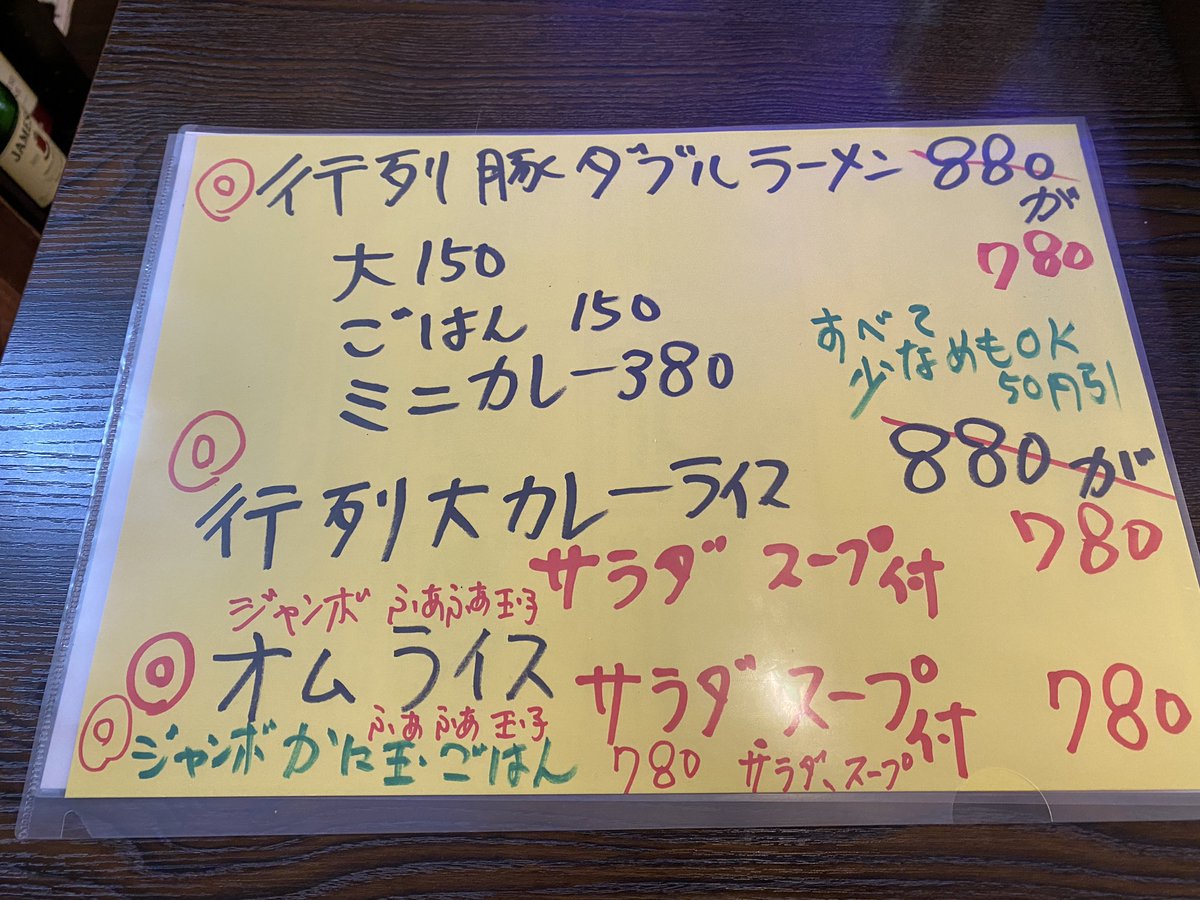 ◎行列豚ダブルラーメン 880
が
780
大 150
ごはん 150
ミニカレー 380
すべて
少なめもOK
50円引
◎行列大カレーライス 880が
780
サラダ スープ付
ジャンボ ふあふあ玉子
◎オムライス サラダ スープ付 780
ふあふあ玉子
◎ジャンボかに玉・ごはん 780 サラダ、スープ